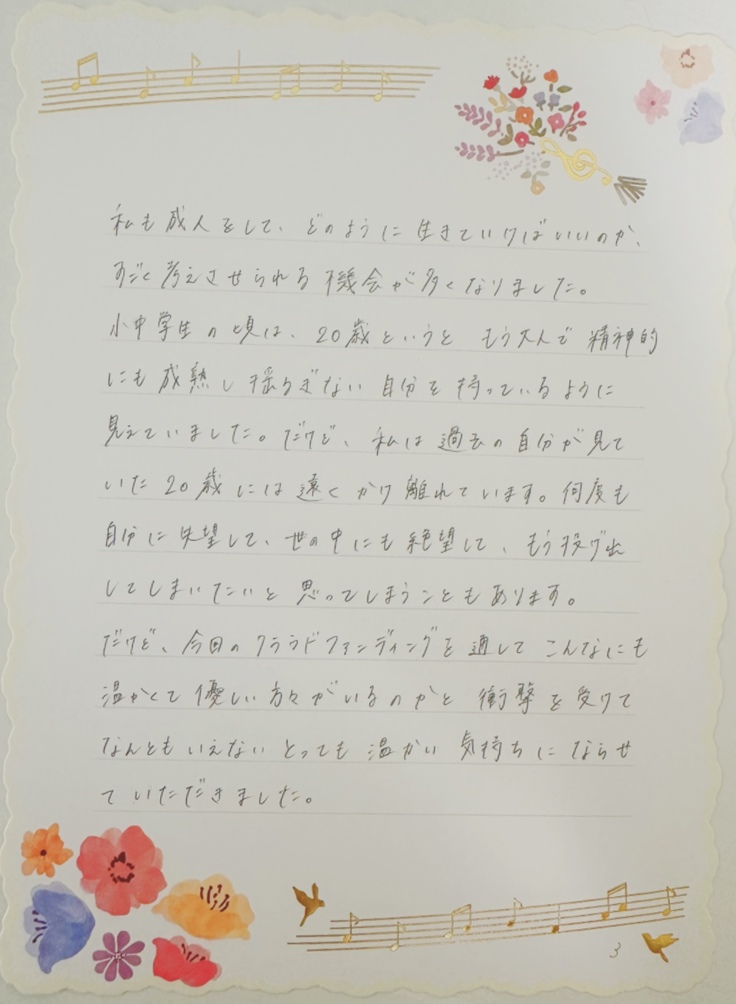 私も成人をして、どのように生きていけばいいのか、
すごく考えさせられる機会が多くなりました。
小中学生の頃は、20歳というと もう大人で 精神的
にも成熟し揺るぎない自分を持っているように
見えていました。だけど、私は過去の自分が見て
いた20歳には遠くかけ離れています。何度も
自分に失望して、世の中にも絶望して、もう投げ出
してしまいたいと思ってしまうこともあります。
だけど、今回のクラウドファンディングを通してこんなにも
温かくて優しい方々がいるのかと 衝撃を受けて
なんともいえないとっても温かい気持ちにならせ
ていただきました。
3